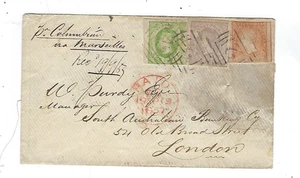 pr Columbian
via Marseilles
W. Purdy Esqre
Manager
South Australian Banking Cy
54 Old Broad Street
London